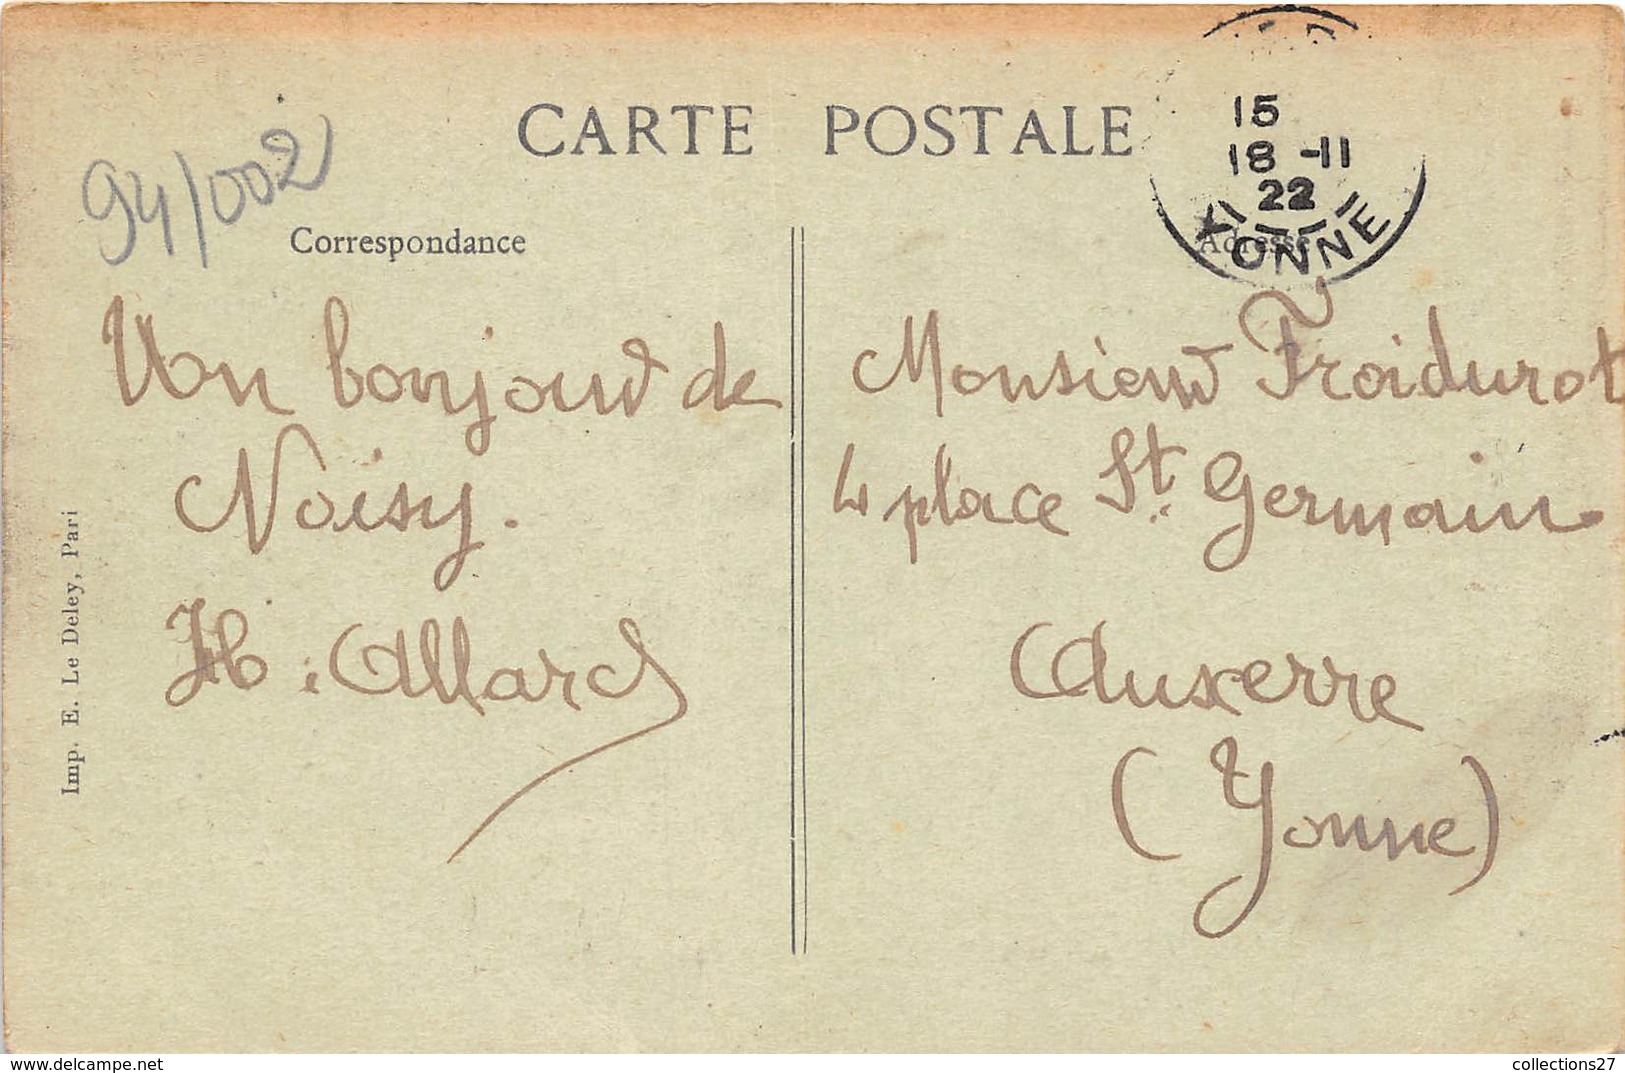 CARTE POSTALE
94/002
15
18 -11
22
YONNE
Correspondance
Adresse
Un bonjour de
Noisy.
H. Allard
Monsieur Froidurot
4 place St. Germain
Auxerre
(Yonne)
Imp. E. Le Deley, Pari
https://www.delcampe.net
collections27